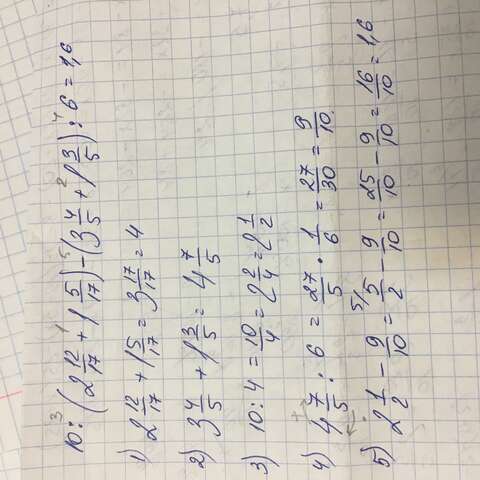 10 : (2 12/17 + 1 5/17) - (3 4/5 + 1 3/5) : 6 = 1,6
1) 2 12/17 + 1 5/17 = 3 17/17 = 4
2) 3 4/5 + 1 3/5 = 4 7/5
3) 10 : 4 = 10/4 = 2 2/4 = 2 1/2
4) 4 7/5 : 6 = 27/5 · 1/6 = 27/30 = 9/10
5) 2 1/2 - 9/10 = 5/2 - 9/10 = 25/10 - 9/10 = 16/10 = 1,6